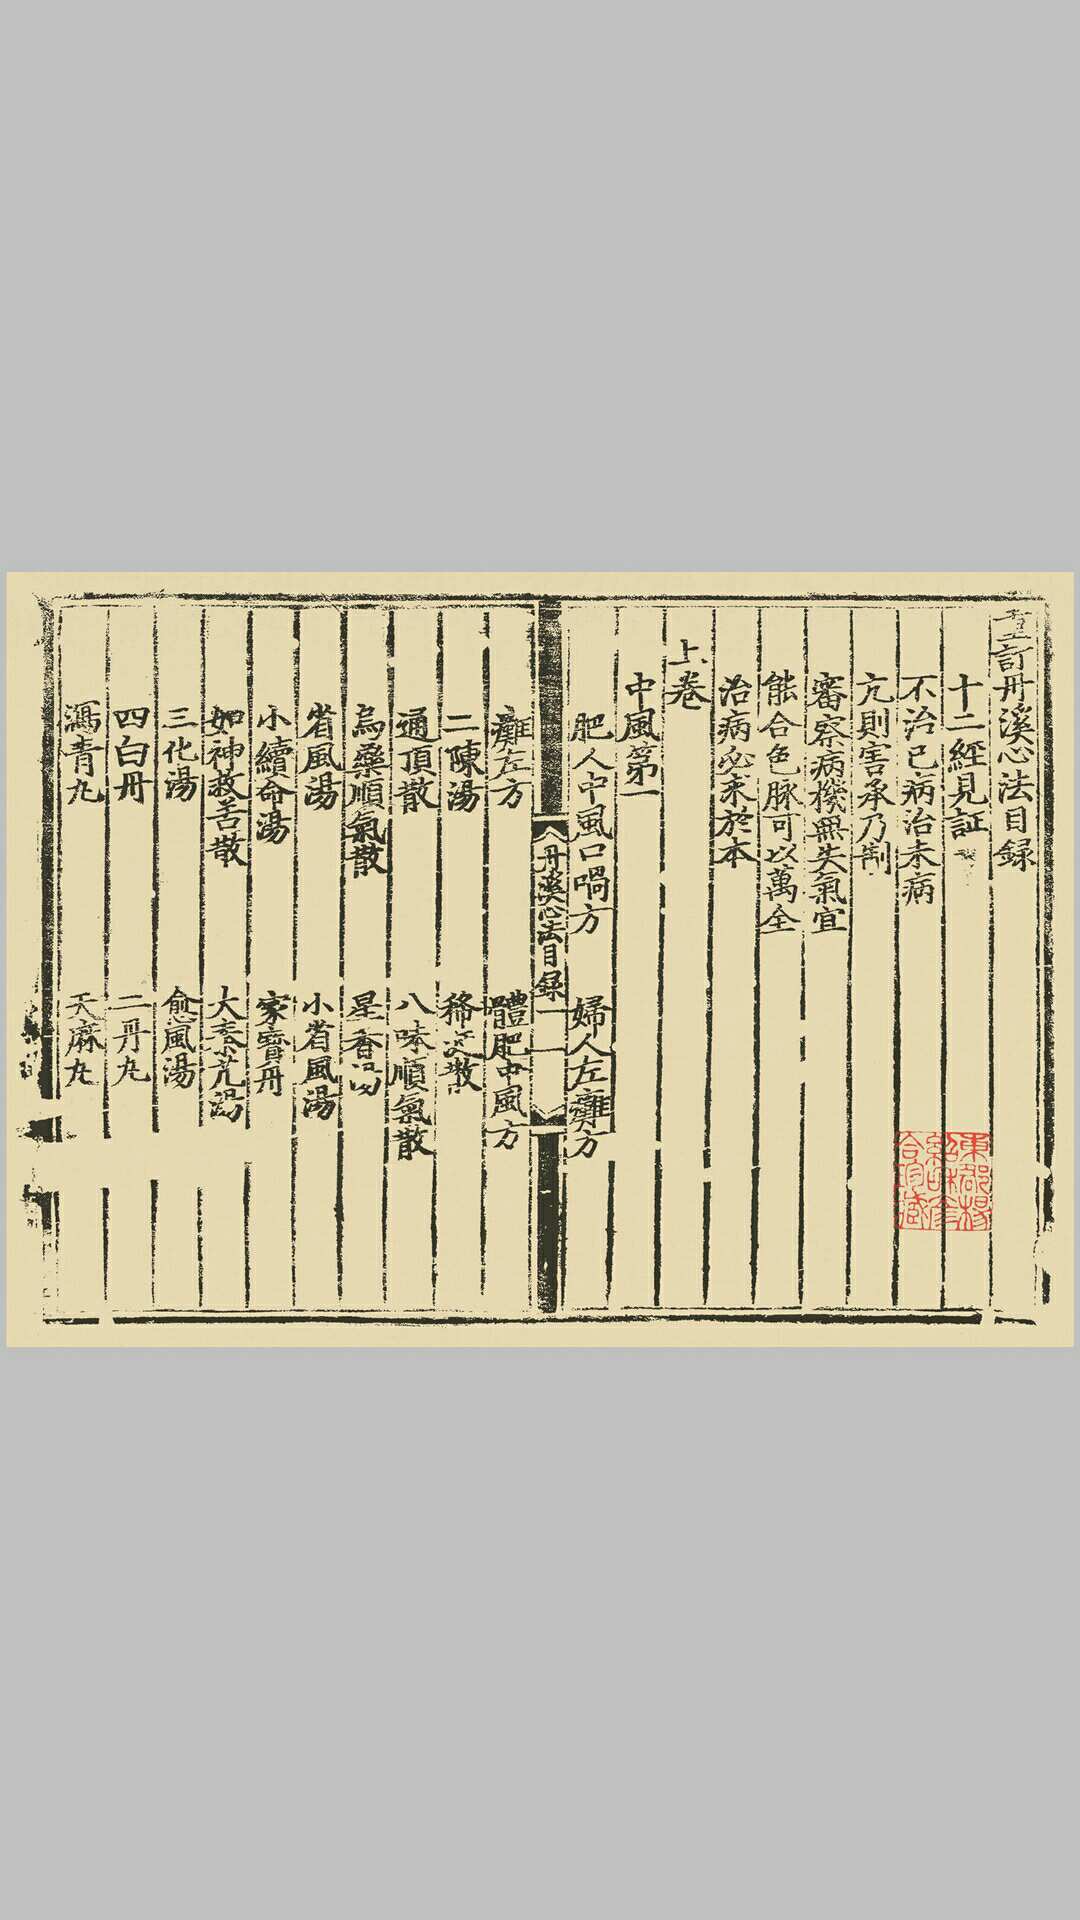 重訂丹溪心法目録
十二經見証
不治已病治未病
亢則害承乃制
審察病機無失氣宜
能合色脉可以萬全
治病必求於本
上卷
中風第一
肥人中風口喎方 婦人左癱方
丹溪心法目録 一
癱左方 體肥中風方
二陳湯 稀涎散
通頂散 八味順氣散
烏藥順氣散 星香湯
省風湯 小省風湯
小續命湯 家寶丹
如神救苦散 大秦艽湯
三化湯 愈風湯
四白丹 二丹丸
瀉青丸 天麻丸